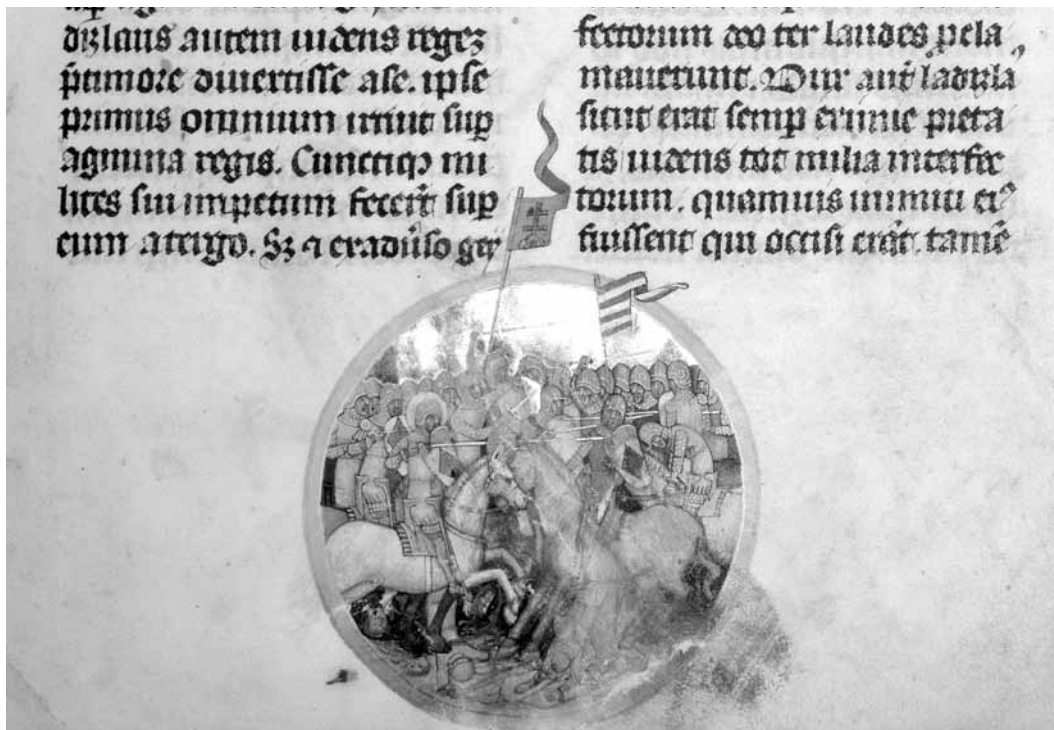 dizlaus autem uidens regez
p̄timore diuertisse ase. ipse
primus omnium irruit suꝑ
agmina regis. Cunctiqꝫ mi
lites sui impetum fecer̄t suꝑ
eum atergo. Sꝫ ⁊ exadūso gey
fectorum deo ter laudes ꝓcla
mauerunt. Dux aut̄ ladizla
sicut erat semꝑ eximie pieta
tis uidens tot milia interfec
torum. quamuis inimici ei⁹
fuissent qui occisi erāt. tamē